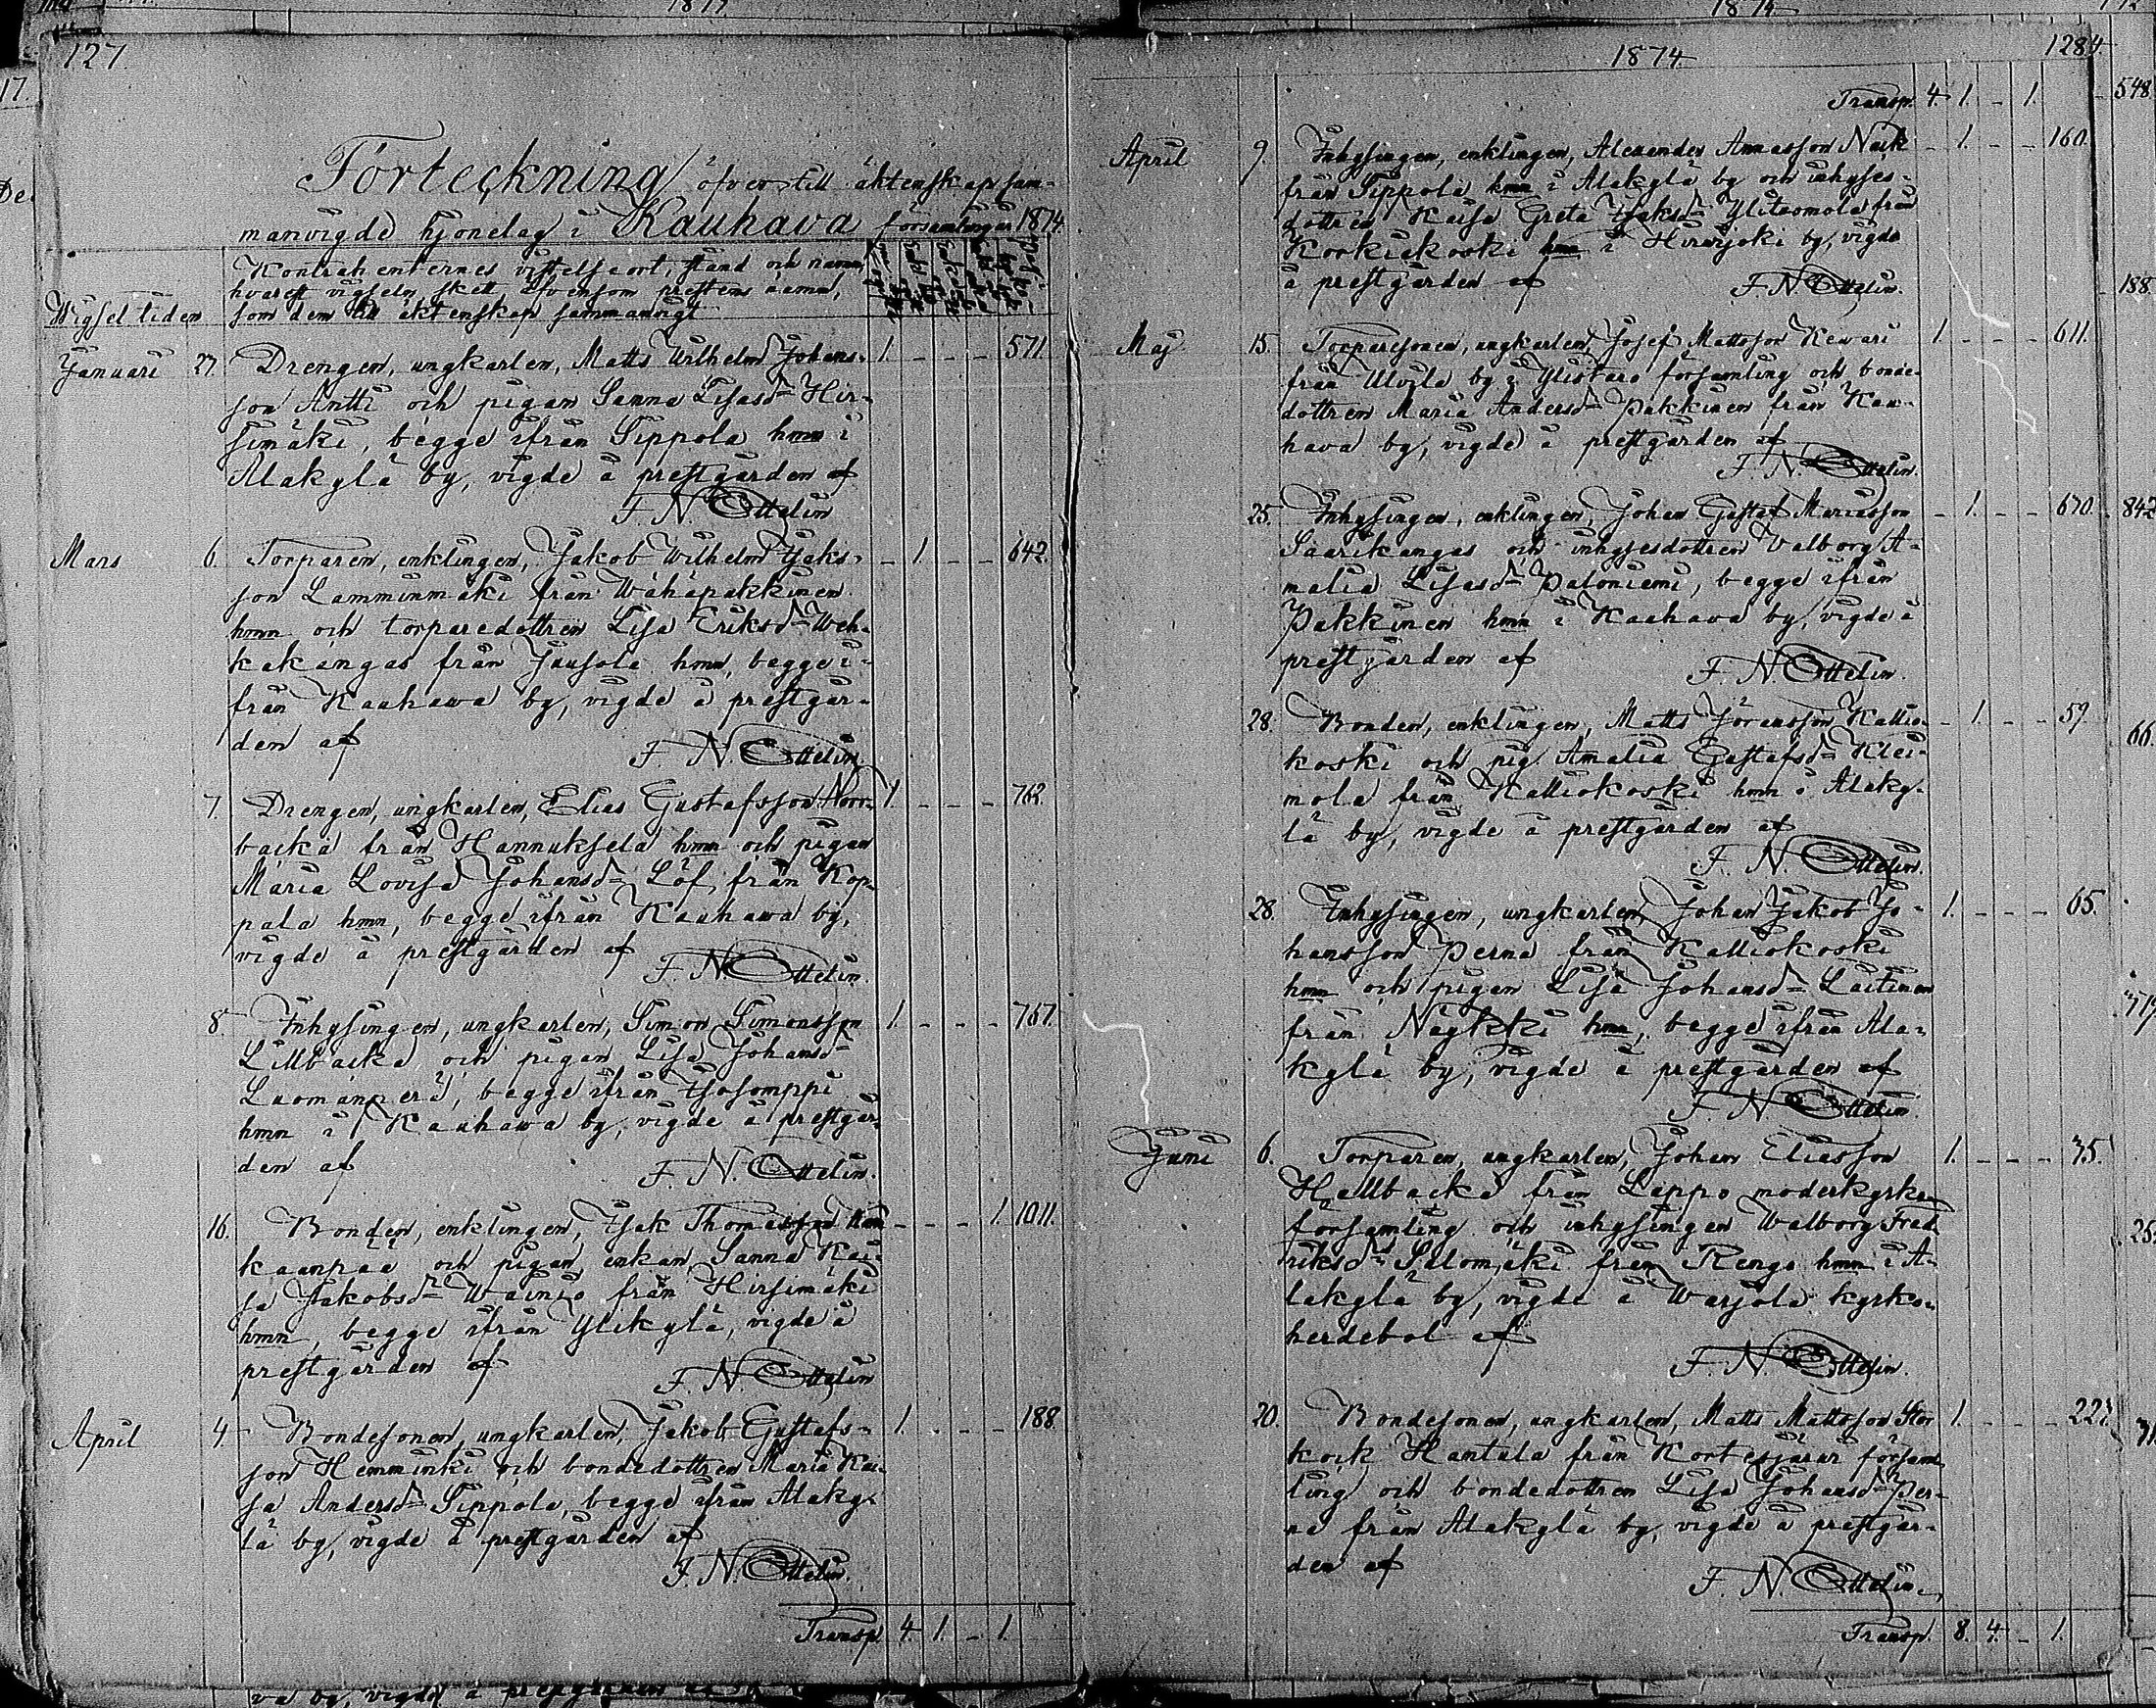 127.
Förteckning öfver till äktenskap sam-
manvigde hjonelag i Kauhava församlingar 1874
Wigsel tiden
Kontrahenternes vistelseort, stånd och namn,
hvarest vigseln skett äfvensom prestens namn,
som dem till äktenskap sammanvigt
Januari 27. Drengen, ungkarlen, Matts Wilhelm Johans- 1. - - - 571.
son Antti och pigan Sanna Lisasdr Hir-
simäki, begge ifrån Sippola hmn i
Alakylä by, vigde å prestgården af
F. N. Ottelin
Mars 6. Torparen, enklingen, Jakob Wilhelm Isaks- - 1. - - 642.
son Lamminmäki från Wähäpakkinen
hmn och torparedottren Lisa Eriksdr Weh-
kakangas från Juusola hmn, begge i-
från Kauhawa by, vigde å prestgår-
den af F. N. Ottelin.
7. Drengen, ungkarlen, Elias Gustafsson Norr- 1. - - - 762.
backa från Hannuksela hmn och pigan
Maria Lovisa Johansdr Löf från Kop-
pala hmn, begge ifrån Kauhawa by,
vigde å prestgården af F. N. Ottelin.
8 Inhysingen, ungkarlen, Simon Simonsson 1. - - - 767.
Lillbacka och pigan Lisa Johansdr
Luomanperä, begge ifrån Isosomppi
hmn i Kauhawa by, vigde å prestgår-
den af F. N. Ottelin.
16. Bonden, enklingen, Isak Thomasson - - - 1. 1011.
kaanpää och pigan, enkan, Sanna Kai-
sa Jakobsdr Wainio från Hirsimäki
hmn, begge ifrån Ylikylä, vigde å
prestgården af F. N. Ottelin
April 4. Bondesonen, ungkarlen, Jakob Gustafs- 1. - - - 188.
son Hemminki och bondedottren Maria Kai-
sa Andersdr Sippola, begge ifrån Alaky-
lä by, vigde å prestgården af
F. N. Ottelin.
Transp. 4. 1. - 1.
1874 128
Transp. 4. 1. - 1.
April 9. Inhysingen, enklingen, Alexander Annasson - 1. - - 160.
från Sippola hmn i Alakylä by och inhyses-
dottren Kaisa Greta Isaksdr Ylitaomola från
Korkiakoski hmn i Hirvijoki by, vigde
å prestgården af F. N. Ottelin.
Maj 15. Torparesonen, ungkarlen, Josef Mattsson Kewari 1. - - - 611.
från Ulvila by i Ylistaro församling och bonde-
dottren Maria Andersdr Pakkinen från Kau-
hava by, vigde å prestgården af
F. N. Ottelin.
25. Inhysingen, enklingen, Johan Gustaf Mariasson - 1. - - 670.
Saarikangas och inhysesdottren Valborg A-
malia Lisasdr Paloniemi, begge ifrån
Pakkinen hmn i Kauhava by, vigde å
prestgården af F. N. Ottelin.
28. Bonden, enklingen, Matts Göransson Kallio- - 1. - - 59.
koski och pig. Amalia Gustafsdr Klei-
mola från Kalliokoski hmn i Alaky-
lä by, vigde å prestgården af
F. N. Ottelin.
28. Inhysingen, ungkarlen, Johan Jakob Jo- 1. - - - 65.
hansson Perna från Kalliokoski
hmn och pigan Lisa Johansdr Laitinen
från Näykki hmn, begge ifrån Ala-
kylä by, vigde å prestgården af
F. N. Ottelin
Juni 6. Torparen, ungkarlen, Johan Eliasson 1. - - - 75.
Hallbacka från Lappo moderkyrko
församling och inhysingen Walborg Fred-
riksdr Salomäki från Rengo hmn i A-
lakylä by, vigde å Warjola kyrko-
herdebol af
F. N. Ottelin.
20. Bondesonen, ungkarlen, Matts Mattsson Stor 1. - - - 221.
kock Hantala från Kortesjärvi försam-
ling och bondedottren Lisa Johansdr Per-
na från Alakylä by, vigde å prestgår-
den af F. N. Ottelin.
Transp. 8. 4. - 1.